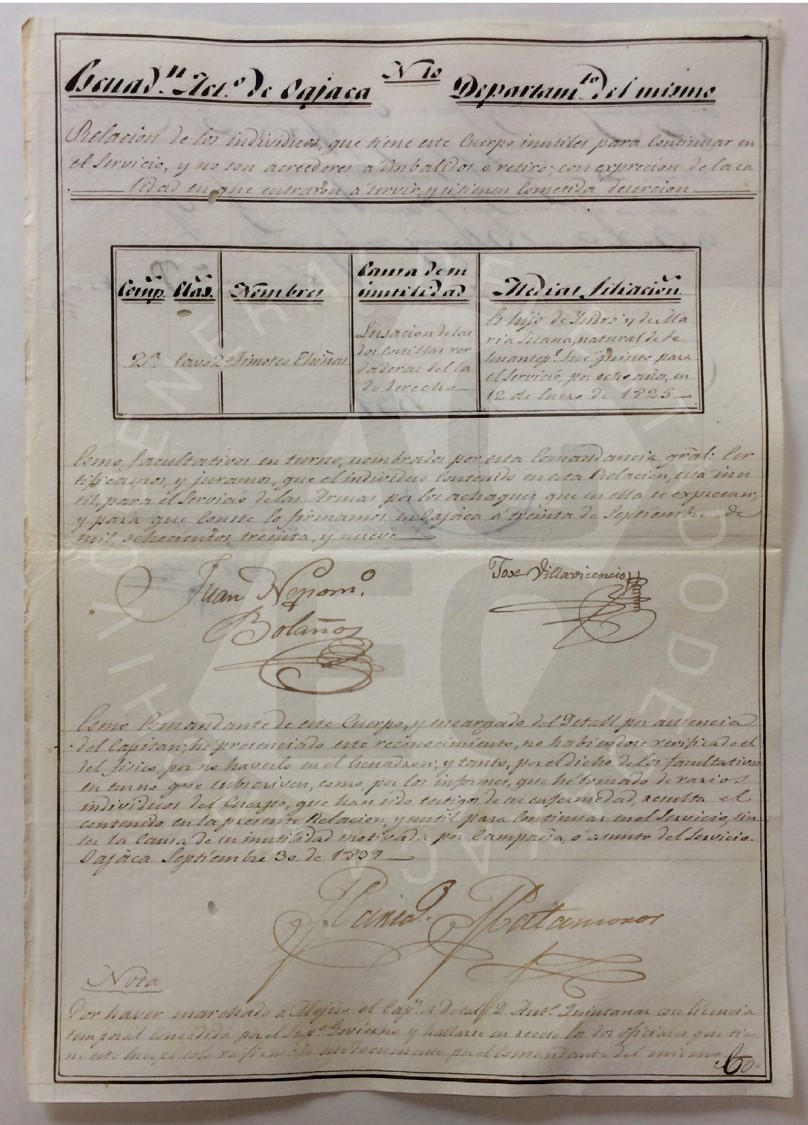 Escuad.n Act.o de Oajaca N 10 Departam.to del mismo
Relacion de los individuos, que tiene este Cuerpo inutiles para Continuar en
el Servicio, y no son acreedores a imbalidos o retiro; con exprecion de la ca
lidad en que entraron a servir, y si tienen Cometida desercion
Comp. Clas. Nombres Causa de su inutilidad Medias filiación.
2ª. Cavo 2º Timoteo
Lusacion de las
dos Costillas ver
daderas del la
do derecho
Es hijo de Ysidro y de Ma
ria Juana, natural de Te
huantep.c fue quinto para
el Servicio, por ocho años, en
12 de Enero de 1825
Como facultativos en turno, nombrados por esta Comandancia gral: Cer
tificamos, y juramos, que el individuo Contenido en esta Relacion, está inu
til para el Servicio de las Armas por los achaques que en ella se expresan;
y para que Conste lo firmamos en Oajaca á treinta de Septiembre de
mil, ochocientos treinta, y nueve
Juan Nepom.o
Bolaños
Jose Villavicencio
Como Comandante de este Cuerpo, y encargado del Detall por ausencia
del Capitan; he presenciado este reconocimiento, no habiendose verificado el
del fisico, por no haverlo en el Escuadron; y tanto, por el dicho de los facultativos
en turno que subscriven, como, por los informes, que he tomado de varios
individuos del Cuerpo, que han sido testigos de su enfermedad, resulta el
contenido en la presente Relacion, ynutil para Continuar en el Servicio, sin
ser la Causa de su inutilidad motivada por Campaña, ó asunto del Servicio.
Oajaca Septiembre 30 de 1839
Matamoros
Nota
Por haver marchado a Mejico el Cap.n de Detall D. Ant.o Quintanar con licencia
temporal concedida por el Sup.mo Govierno, y hallarse en receso los dos oficiales que tie
ne este Cuerpo solo va firmado este documento por el Comandante del mismo
ARCHIVO GENERAL DEL ESTADO DE OAXACA